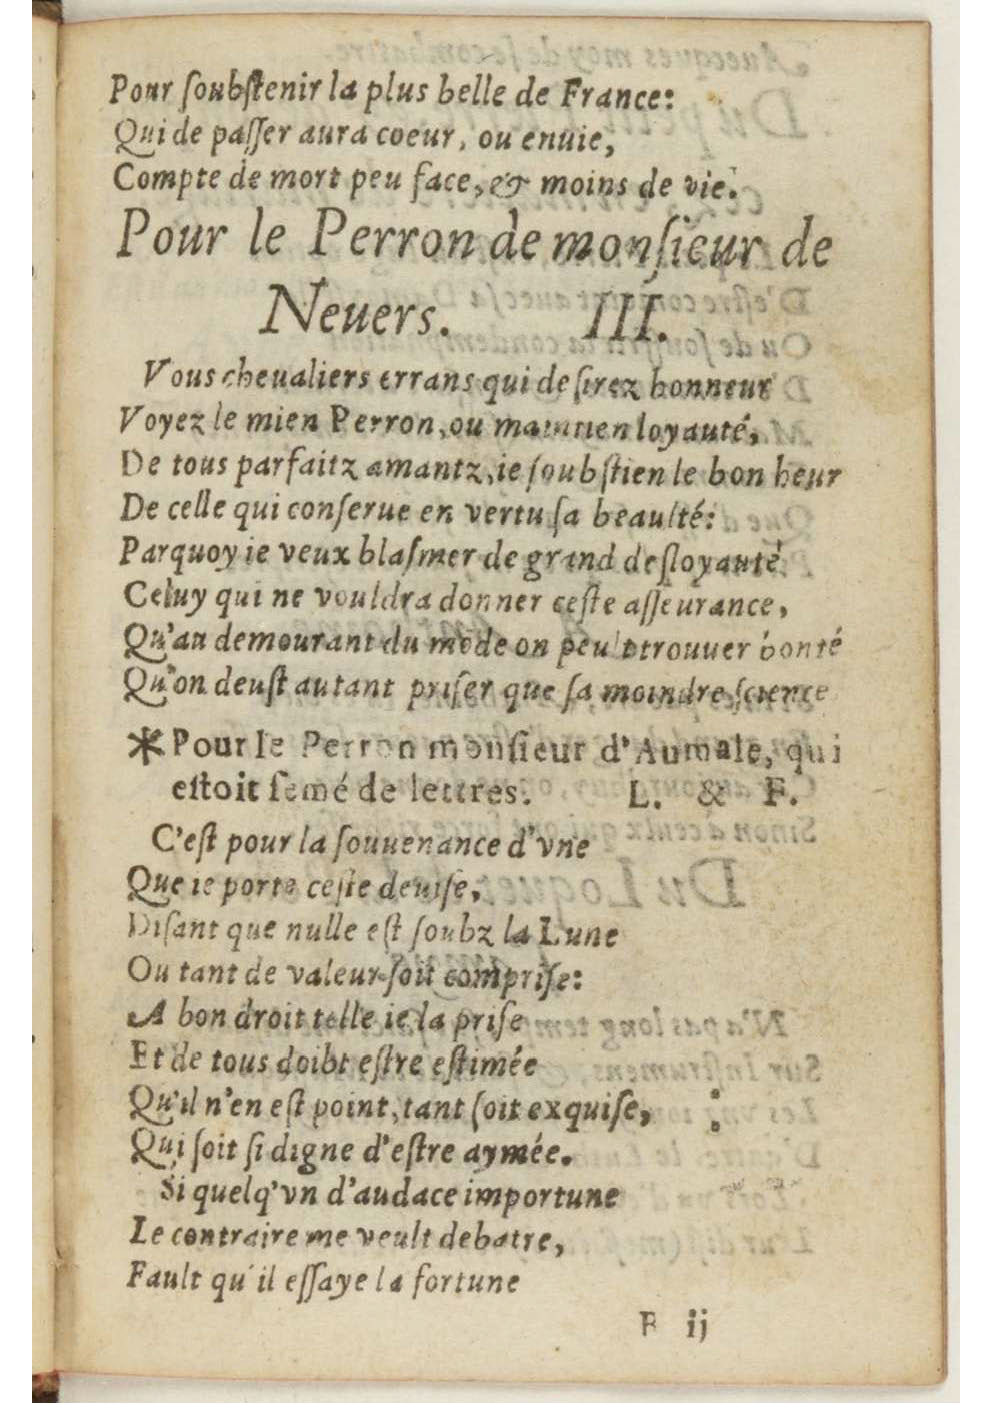 Pour ſoubſtenir la plus belle de France:
Qui de paſſer aura coeur, ou enuie,
Compte de mort peu face, & moins de vie.
Pour le Perron de monſieur de
Neuers. III.
Vous cheualiers errans qui deſirez honneur
Voyez le mien Perron, ou maintien loyauté,
De tous parfaitz amantz, ie ſoubſtien le bon heur
De celle qui conſerue en vertu ſa beaulté:
Parquoy ie veux blaſmer de grand deſloyauté
Celuy qui ne vouldra donner ceſte aſſeurance,
Qu'au demourant du mõde on peult trouuer bonté
Qu'on deuſt autant priſer que ſa moindre ſcience
* Pour le Perron monſieur d'Aumale, qui
eſtoit ſemé de lettres. L. & F.
C'eſt pour la ſouuenance d'vne
Que ie porte ceſte deuiſe,
Diſant que nulle eſt ſoubz la Lune
Ou tant de valeur ſoit compriſe:
A bon droit telle ie la priſe
Et de tous doibt eſtre eſtimée
Qu'il n'en eſt point, tant ſoit exquiſe, :
Qui ſoit ſi digne d'eſtre aymée.
Si quelq'vn d'audace importune
Le contraire me veult debatre,
Fault qu'il eſſaye la fortune
F ij